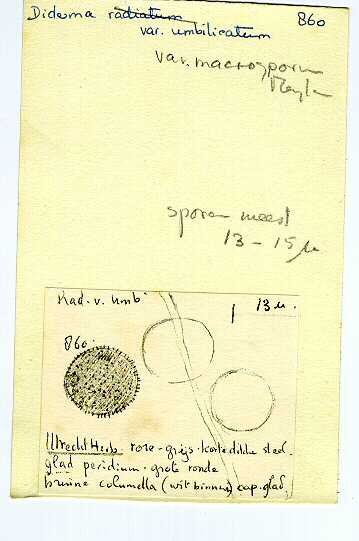 Diderma radiatum 860
var. umbilicatum
var. macrosporum
Meyl.
sporen meest
13 - 15 µ
Rad. v. umb.
13 µ.
860.
Utrecht Herb. rose-grijs. korte dikke steel.
glad peridium. grote ronde
bruine columella (wit binnen) cap. glad,